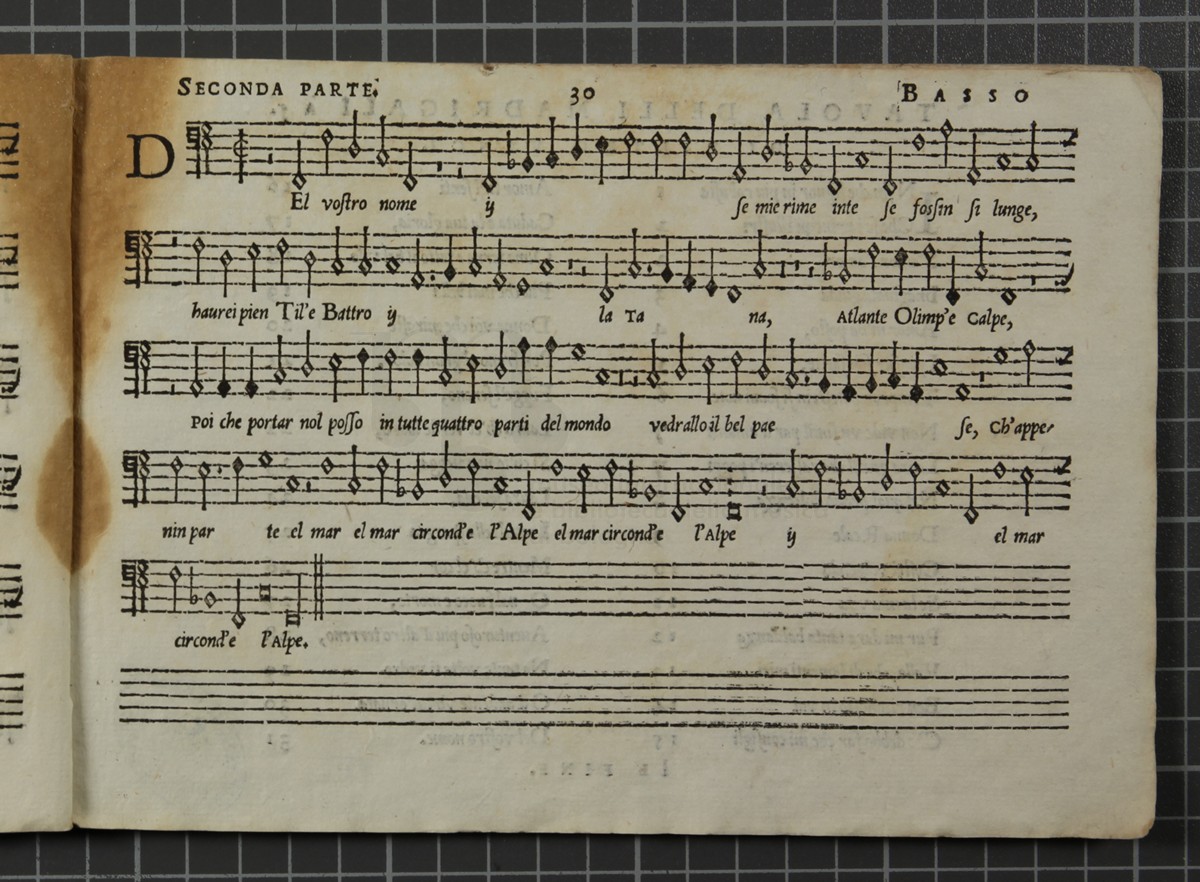 SECONDA PARTE. 30 BASSO
DEl vostro nome ij se mie rime inte se fossin si lunge,
haurei pien Til'e Battro ij la Ta na, Atlante Olimp'e Calpe,
Poi che portar nol posso in tutte quattro parti del mondo vedrallo il bel pae se, Ch'appe-
nin par te el mar el mar circond'e l'Alpe el mar circond'e l'Alpe ij el mar
circond'e l'Alpe.